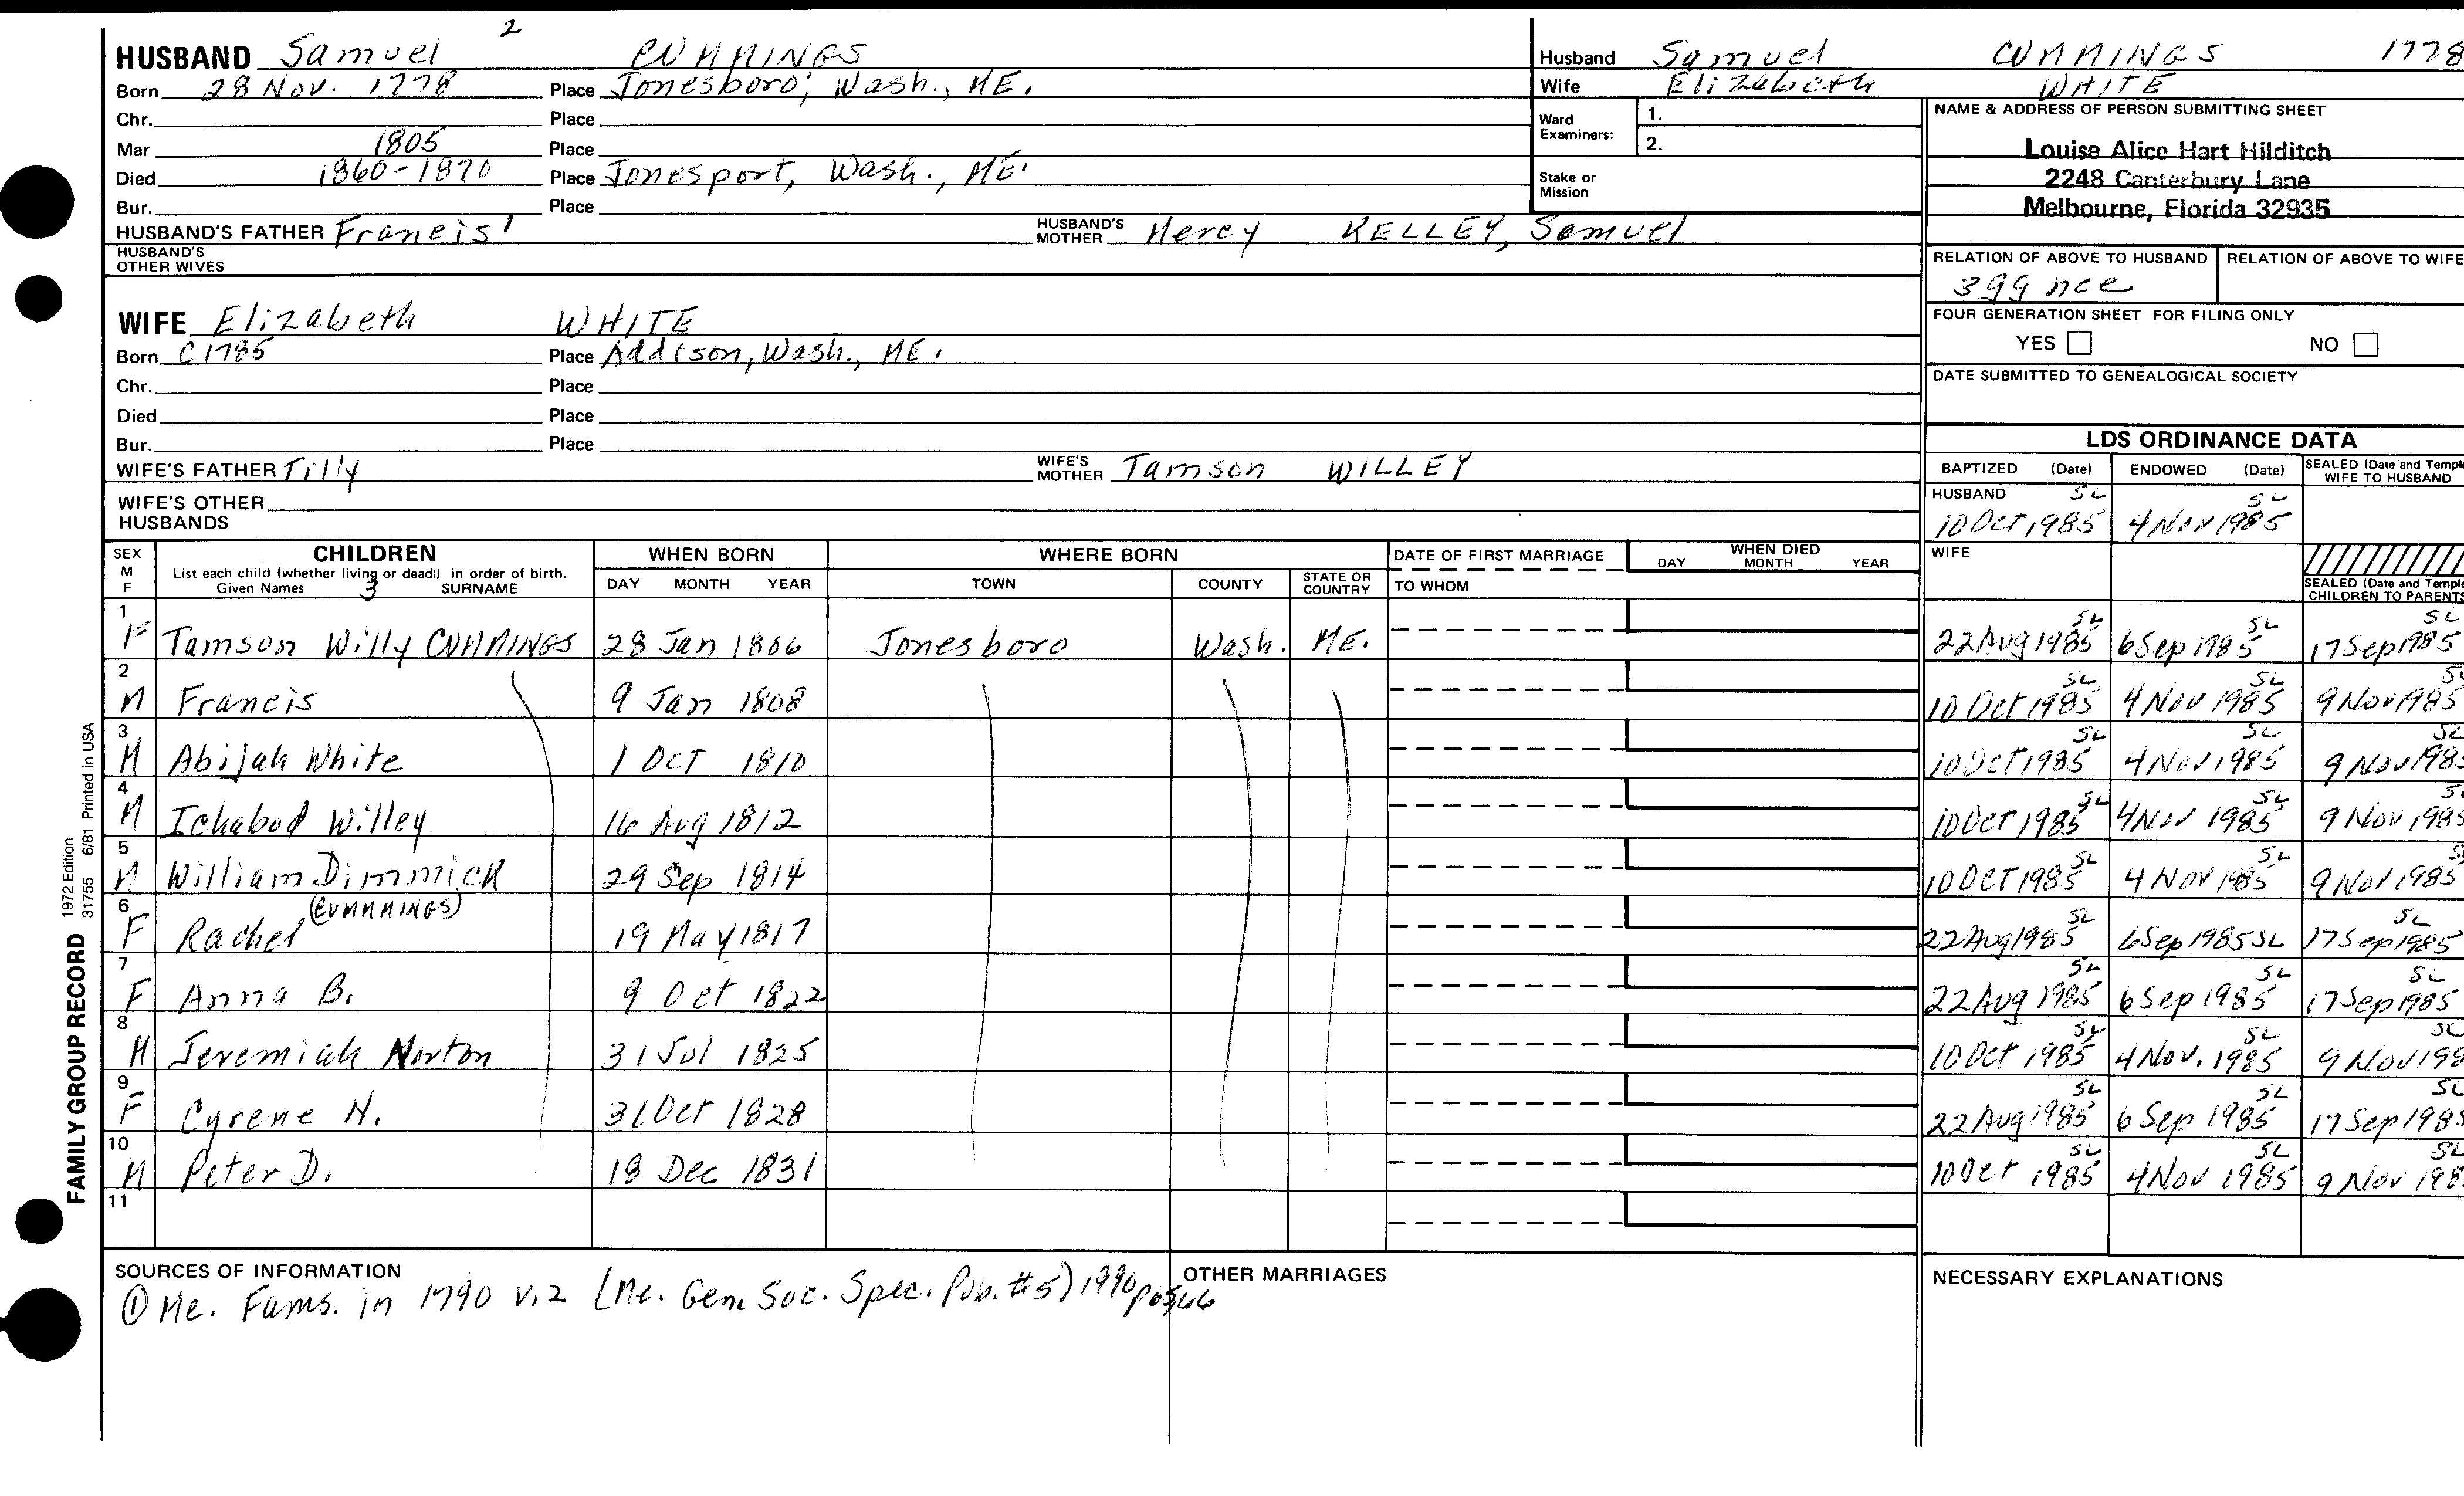 2
HUSBAND Samuel CUMMINGS
Born 28 Nov. 1778 Place Jonesboro, Wash., ME.
Chr. Place
Mar 1805 Place
Died 1860-1870 Place Jonesport, Wash., ME.
Bur. Place
HUSBAND'S FATHER Francis 1 HUSBAND'S MOTHER Mercy KELLEY, Samuel
HUSBAND'S OTHER WIVES
WIFE Elizabeth WHITE
Born C 1785 Place Addison, Wash., ME.
Chr. Place
Died Place
Bur. Place
WIFE'S FATHER Tilly WIFE'S MOTHER Tamson WILLEY
WIFE'S OTHER HUSBANDS
Husband Samuel CUMMINGS 1778
Wife Elizabeth WHITE
Ward Examiners: 1.
2.
Stake or Mission
NAME & ADDRESS OF PERSON SUBMITTING SHEET
Louise Alice Hart Hilditch
2248 Canterbury Lane
Melbourne, Florida 32935
RELATION OF ABOVE TO HUSBAND RELATION OF ABOVE TO WIFE
3gg nce
FOUR GENERATION SHEET FOR FILING ONLY
YES NO
DATE SUBMITTED TO GENEALOGICAL SOCIETY
LDS ORDINANCE DATA
BAPTIZED (Date) ENDOWED (Date) SEALED (Date and Temple) WIFE TO HUSBAND
HUSBAND SL SL
10 Oct 1985 4 Nov 1985
WIFE
SEALED (Date and Temple) CHILDREN TO PARENTS
SEX M F CHILDREN WHEN BORN WHERE BORN DATE OF FIRST MARRIAGE WHEN DIED
List each child (whether living or dead) in order of birth.
Given Names 3 SURNAME DAY MONTH YEAR TOWN COUNTY STATE OR COUNTRY TO WHOM DAY MONTH YEAR
1 F Tamson Willy CUMMINGS 28 Jan 1806 Jonesboro Wash. ME. 22 Aug 1985 SL 6 Sep 1985 SL 17 Sep 1985 SL
2 M Francis 9 Jan 1808 10 Oct 1985 SL 4 Nov 1985 SL 9 Nov 1985 SL
3 M Abijah White 1 Oct 1810 10 Oct 1985 SL 4 Nov 1985 SL 9 Nov 1985 SL
4 M Ichabod Willey 16 Aug 1812 10 Oct 1985 SL 4 Nov 1985 SL 9 Nov 1985 SL
5 M William Dimmick 29 Sep 1814 10 Oct 1985 SL 4 Nov 1985 SL 9 Nov 1985 SL
6 F Rachel (CUMMMINGS) 19 May 1817 22 Aug 1985 SL 6 Sep 1985 SL 17 Sep 1985 SL
7 F Anna B. 9 Oct 1822 22 Aug 1985 SL 6 Sep 1985 SL 17 Sep 1985 SL
8 M Jeremiah Norton 31 Jul 1825 10 Oct 1985 SL 4 Nov. 1985 SL 9 Nov 198 SL
9 F Cyrene N. 31 Oct 1828 22 Aug 1985 SL 6 Sep 1985 SL 17 Sep 1985 SL
10 M Peter D. 18 Dec 1831 10 Oct 1985 SL 4 Nov 1985 SL 9 Nov 198 SL
11
SOURCES OF INFORMATION
① Me. Fams. in 1790 v.2 (Me. Gen. Soc. Spec. Pub. #5) 1990 p65,66
OTHER MARRIAGES
NECESSARY EXPLANATIONS
FAMILY GROUP RECORD 1972 Edition
31755 6/81 Printed in USA